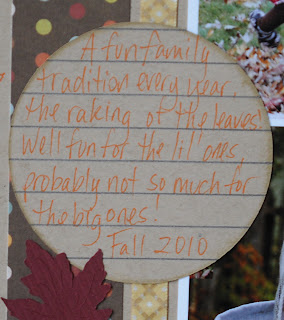 A fun family
tradition every year,
the raking of the leaves!
Well fun for the lil' ones,
probably not so much for
the big ones!
Fall 2010